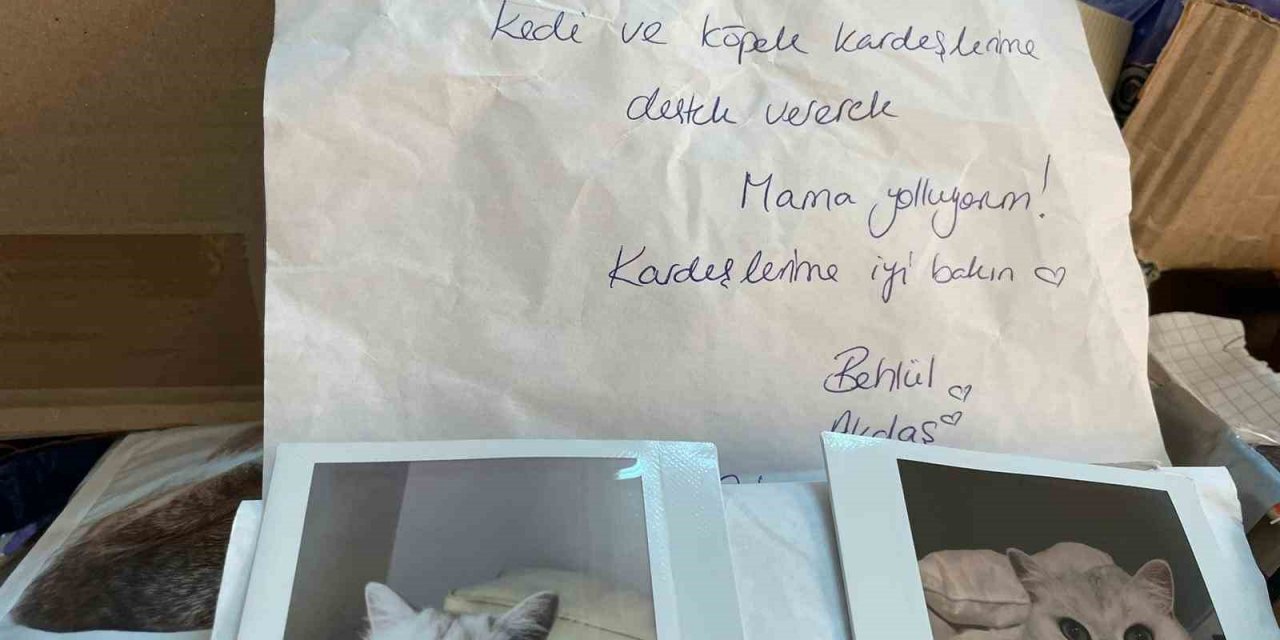 Kedi ve köpek kardeşlerime
destek vererek
Mama yolluyorum!
Kardeşlerime iyi bakın ♡
Behlül ♡
Akdaş ♡